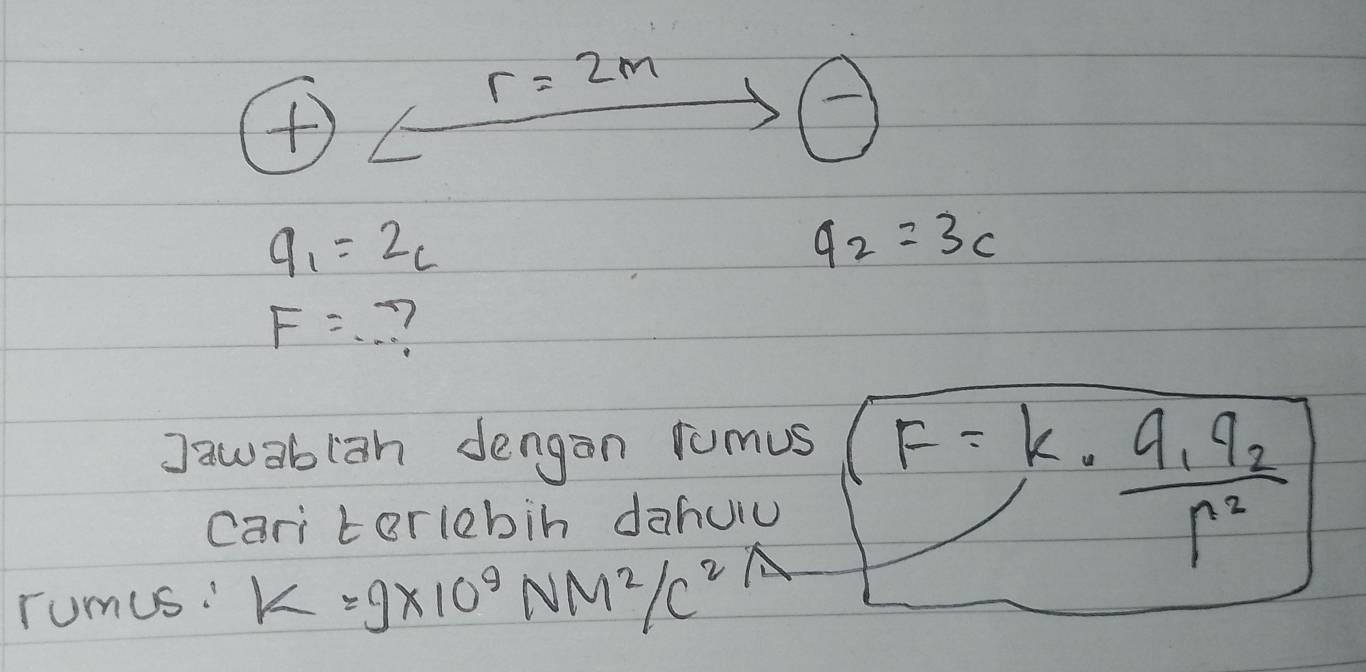 r = 2m
+ −
q₁ = 2c q₂ = 3c
F = ...?
Jawablah dengan rumus F = k . q₁q₂ / r²
cari terlebih dahulu
rumus : K = 9x10⁹ NM²/C²